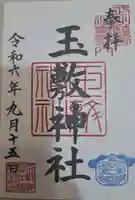 奉拝
玉敷神社
令和六年九月十五日